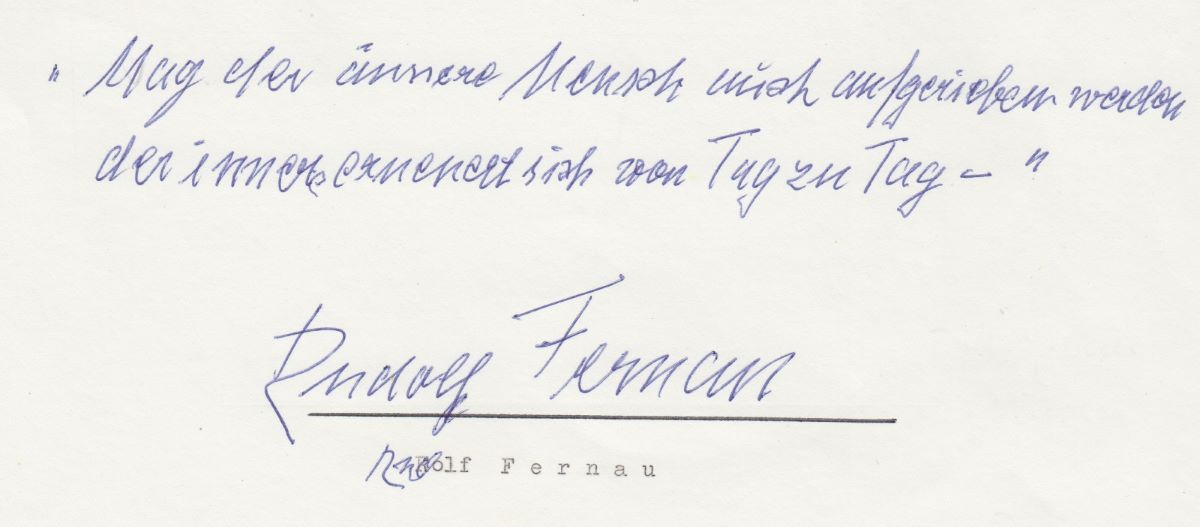 " Mag der äussere Mensch auch aufgerieben werden
der innere erneuert sich von Tag zu Tag – "
Rudolf Fernau
Rolf Fernau